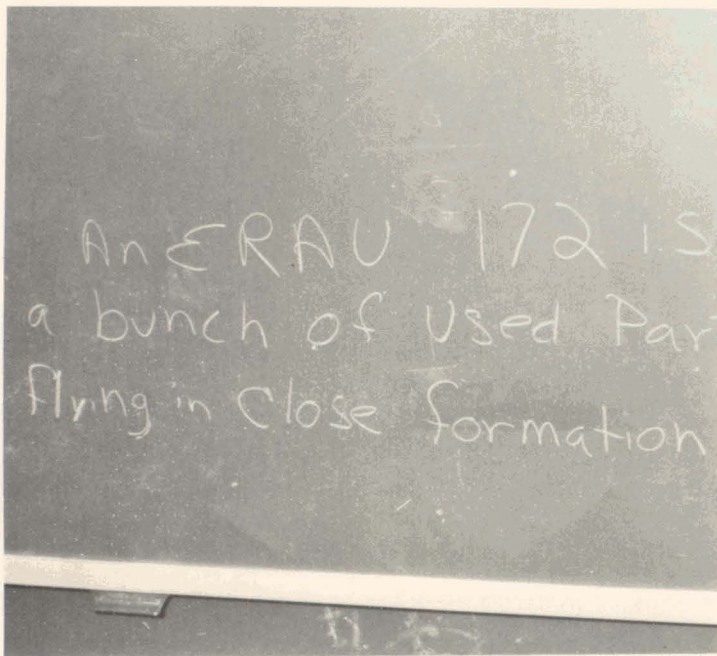 An ERAU 172 is
a bunch of Used Par
flying in Close formation